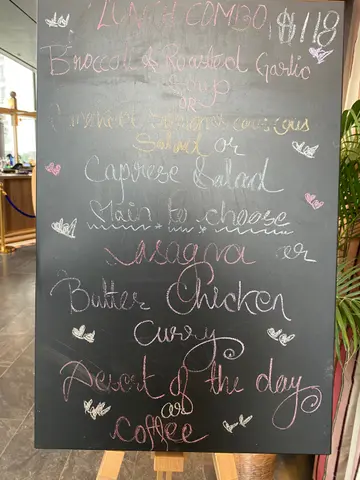 LUNCH COMBO, $118
Broccoli & Roasted Garlic
Soup
OR
Smoked Salmon & Couscous
Salad or
Caprese Salad
Main to choose
Lasagna or
Butter Chicken
Curry
Desert of the day
or
Coffee